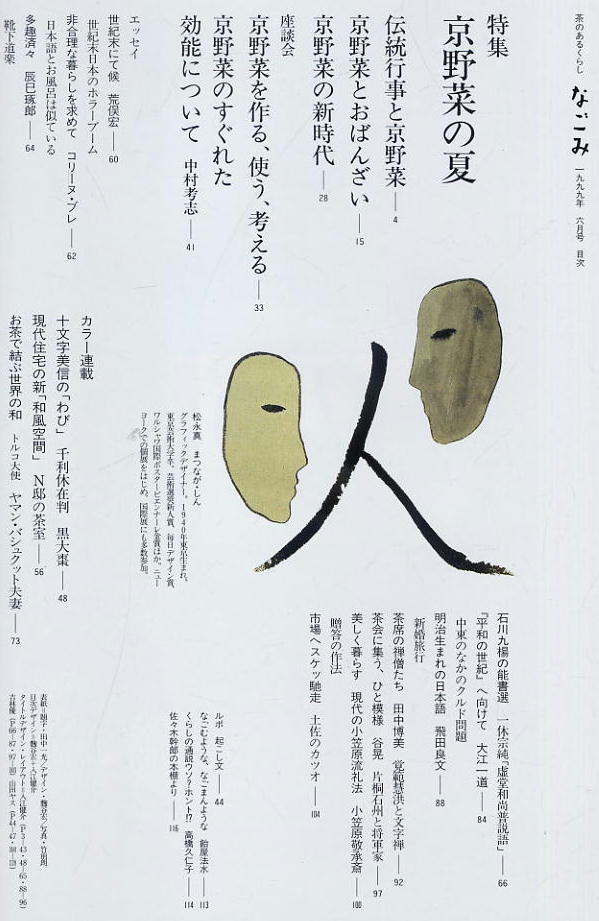 茶のあるくらし なごみ 一九九九年 六月号 目次
特集
京野菜の夏
伝統行事と京野菜——4
京野菜とおばんざい——15
京野菜の新時代——28
座談会
京野菜を作る、使う、考える——33
京野菜のすぐれた
効能について 中村考志——41
エッセイ
世紀末にて候 荒俣宏——60
世紀末日本のホラーブーム
非合理な暮らしを求めて コリーヌ・ブレ——62
日本語とお風呂は似ている
多趣済々 辰巳琢郎——64
靴下道楽
カラー連載
十文字美信の「わび」 千利休在判 黒大棗——48
現代住宅の新「和風空間」 N邸の茶室——56
お茶で結ぶ世界の和 トルコ大使 ヤマン・バシュクット夫妻——73
松永真 まつなが・しん
グラフィックデザイナー。1940年東京生まれ。
東京芸術大学卒。芸術選奨新人賞、毎日デザイン賞、
ワルシャワ国際ポスタービエンナーレ金賞ほか。ニュー
ヨークでの個展をはじめ、国際展にも多数参加。
人
石川九楊の能書選 一休宗純「虚堂和尚普説語」——66
「平和の世紀」へ向けて 大江一道——84
中東のなかのクルド問題
明治生まれの日本語 飛田良文——88
新婚旅行
茶席の禅僧たち 田中博美 覚範慧洪と文字禅——92
茶会に集う、ひと模様 谷晃 片桐石州と将軍家——97
美しく暮らす 現代の小笠原流礼法 小笠原敬承斎——100
贈答の作法
市場へスケッチ馳走 土佐のカツオ——104
ルポ 起こし文——44
なごむような、なごまんような 飴屋法水——113
くらしの通説ウソ?ホント!? 高橋久仁子——114
佐々木幹郎の本棚より——116